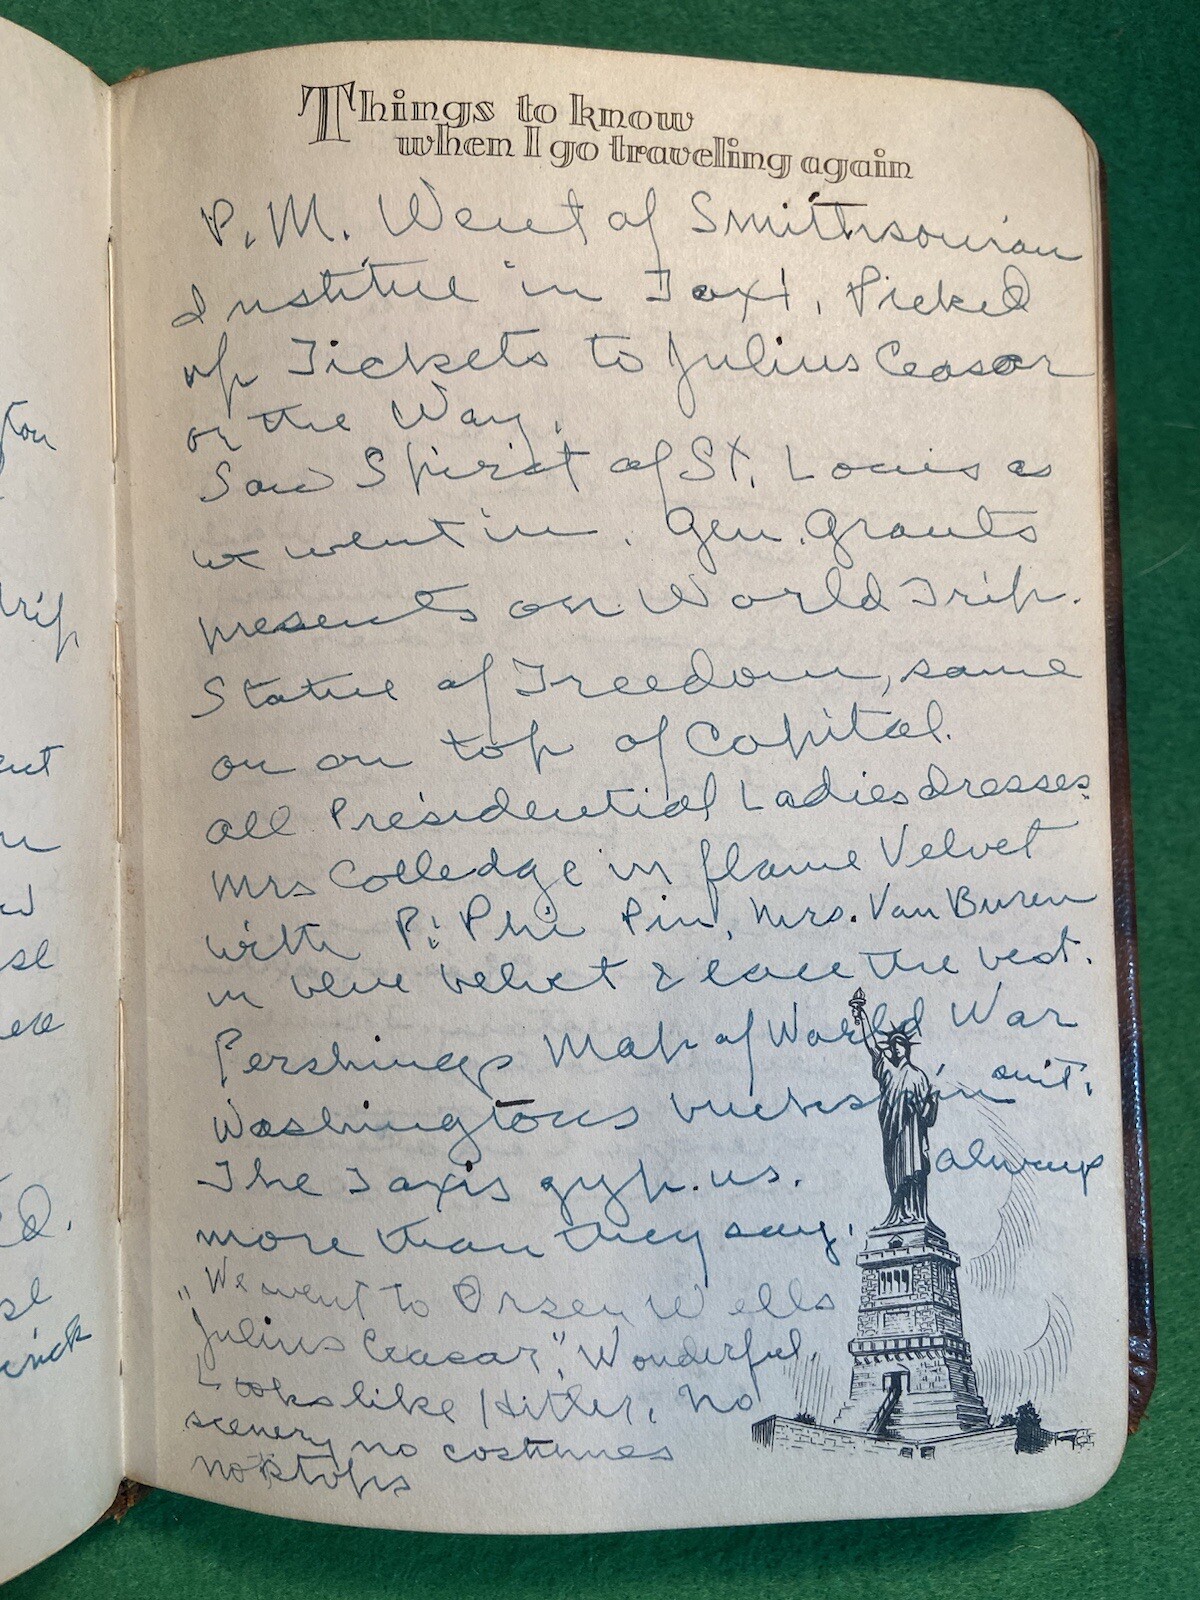 Things to know
when I go traveling again
P. M. Went of Smithsonian
Institue in Taxi. Picked
up Tickets to Julius Ceasar
on the Way.
Saw Spirit of St. Louis as
we went in. Gen. Grants
presents on World Trip.
Statue of Freedom, same
on on top of Capital.
all Presidential Ladies dresses.
Mrs Colledge in flame Velvet
with Pi Phi Pin, Mrs. Van Buren
in blue velvet & lace the best.
Pershings Map of World War
Washingtons buckskin suit.
The Taxis gyp. us. always
more than they say.
"We went to Orsen Wells
Julius Ceasar," Wonderful.
Looks like Hitler, no
scenery no costumes
no stops
ton
trip
ent
ed.